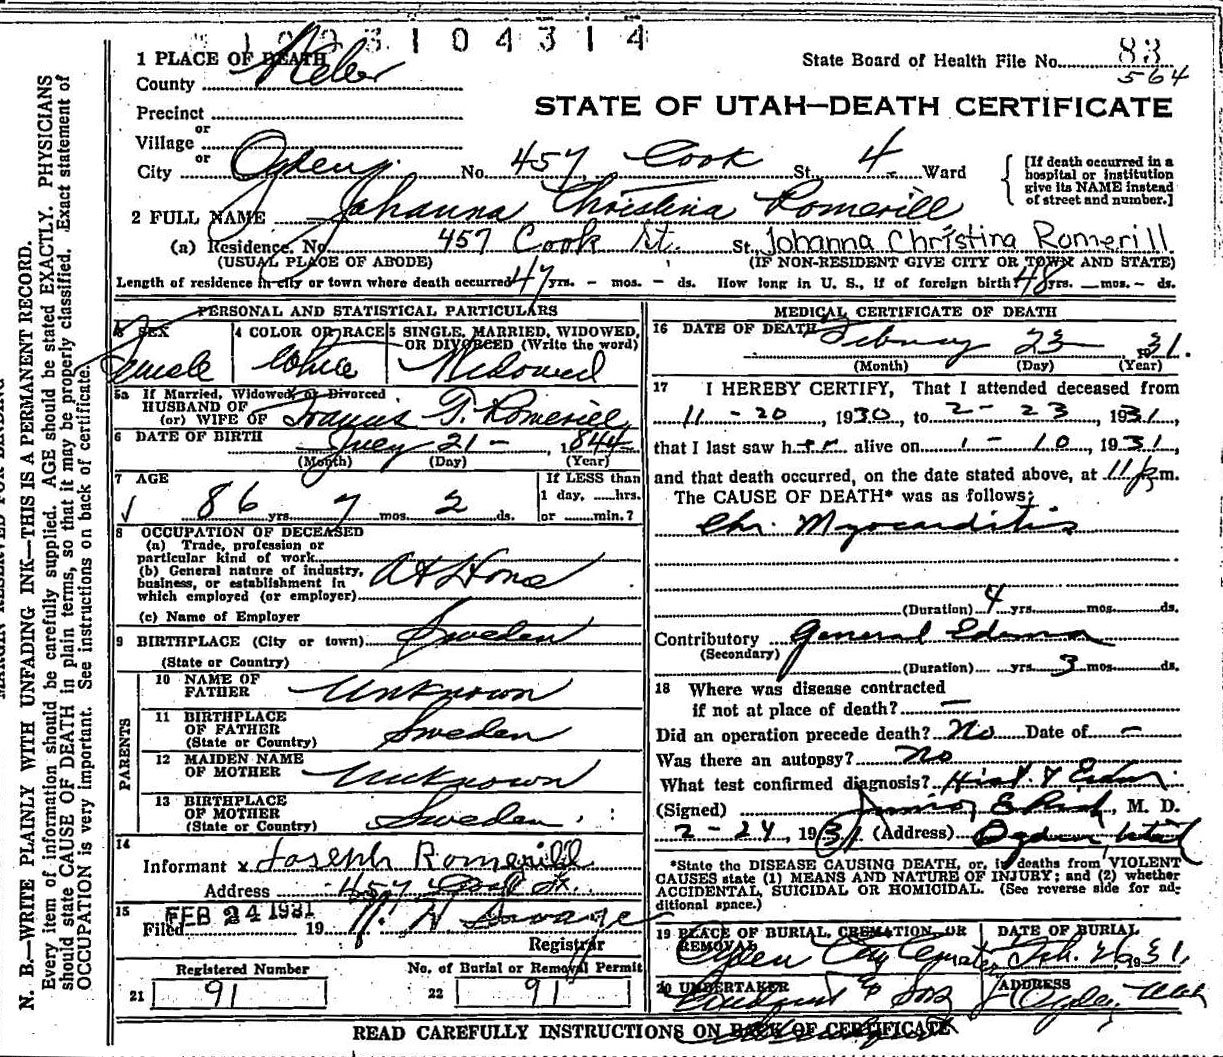 1 0 0 3 1 0 4 3 1 4
1 PLACE OF DEATH
State Board of Health File No. 83
564
County Weber
STATE OF UTAH—DEATH CERTIFICATE
Precinct
or
Village
or
City Ogden No. 457 Cook St. 4 Ward
[If death occurred in a hospital or institution give its NAME instead of street and number.]
2 FULL NAME Johanna Christina Romerill
(a) Residence, No. 457 Cook St. St. Johanna Christina Romerill
(USUAL PLACE OF ABODE) (IF NON-RESIDENT GIVE CITY OR TOWN AND STATE)
Length of residence in city or town where death occurred 47 yrs. - mos. - ds. How long in U. S., if of foreign birth? 48 yrs. — mos. - ds.
PERSONAL AND STATISTICAL PARTICULARS
3 SEX Female
4 COLOR OR RACE White
5 SINGLE, MARRIED, WIDOWED, OR DIVORCED (Write the word) Widowed
5a If Married, Widowed or Divorced
HUSBAND OF
(or) WIFE OF Francis T. Romerill
6 DATE OF BIRTH July 21 - 1844
(Month) (Day) (Year)
7 AGE 86 yrs. 7 mos. 2 ds.
If LESS than
1 day, ......hrs.
or ......min.?
8 OCCUPATION OF DECEASED
(a) Trade, profession or
particular kind of work
(b) General nature of industry,
business, or establishment in
which employed (or employer) At Home
(c) Name of Employer
9 BIRTHPLACE (City or town) Sweden
(State or Country)
PARENTS
10 NAME OF FATHER Unknown
11 BIRTHPLACE OF FATHER (State or Country) Sweden
12 MAIDEN NAME OF MOTHER Unknown
13 BIRTHPLACE OF MOTHER (State or Country) Sweden
14
Informant x Joseph Romerill
Address 457 St.
15
Filed FEB 24 1931 19
Registrar
Registered Number
21 91
No. of Burial or Removal Permit
22 91
MEDICAL CERTIFICATE OF DEATH
16 DATE OF DEATH February 23 1931.
(Month) (Day) (Year)
17 I HEREBY CERTIFY, That I attended deceased from
11 - 20, 1930, to 2 - 23, 1931,
that I last saw her alive on 1 - 10, 1931,
and that death occurred, on the date stated above, at 11 p.m.
The CAUSE OF DEATH* was as follows:
Chr. Myocarditis
(Duration) 4 yrs. mos. ds.
Contributory General Edema
(Secondary)
(Duration) yrs. 3 mos. ds.
18 Where was disease contracted
if not at place of death? —
Did an operation precede death? No Date of —
Was there an autopsy? No
What test confirmed diagnosis? Hist. & Exam.
(Signed) M. D.
2 - 24, 1931 (Address) Ogden Utah
*State the DISEASE CAUSING DEATH, or, in deaths from VIOLENT
CAUSES state (1) MEANS AND NATURE OF INJURY; and (2) whether
ACCIDENTAL, SUICIDAL OR HOMICIDAL. (See reverse side for ad-
ditional space.)
19 PLACE OF BURIAL, CREMATION, OR REMOVAL Ogden City Cemetery
DATE OF BURIAL Feb. 26, 1931,
20 UNDERTAKER & Son
ADDRESS Ogden Utah
READ CAREFULLY INSTRUCTIONS ON BACK OF CERTIFICATE
N. B.—WRITE PLAINLY WITH UNFADING INK—THIS IS A PERMANENT RECORD.
Every item of information should be carefully supplied. AGE should be stated EXACTLY. PHYSICIANS
should state CAUSE OF DEATH in plain terms, so that it may be properly classified. Exact statement of
OCCUPATION is very important. See instructions on back of certificate.